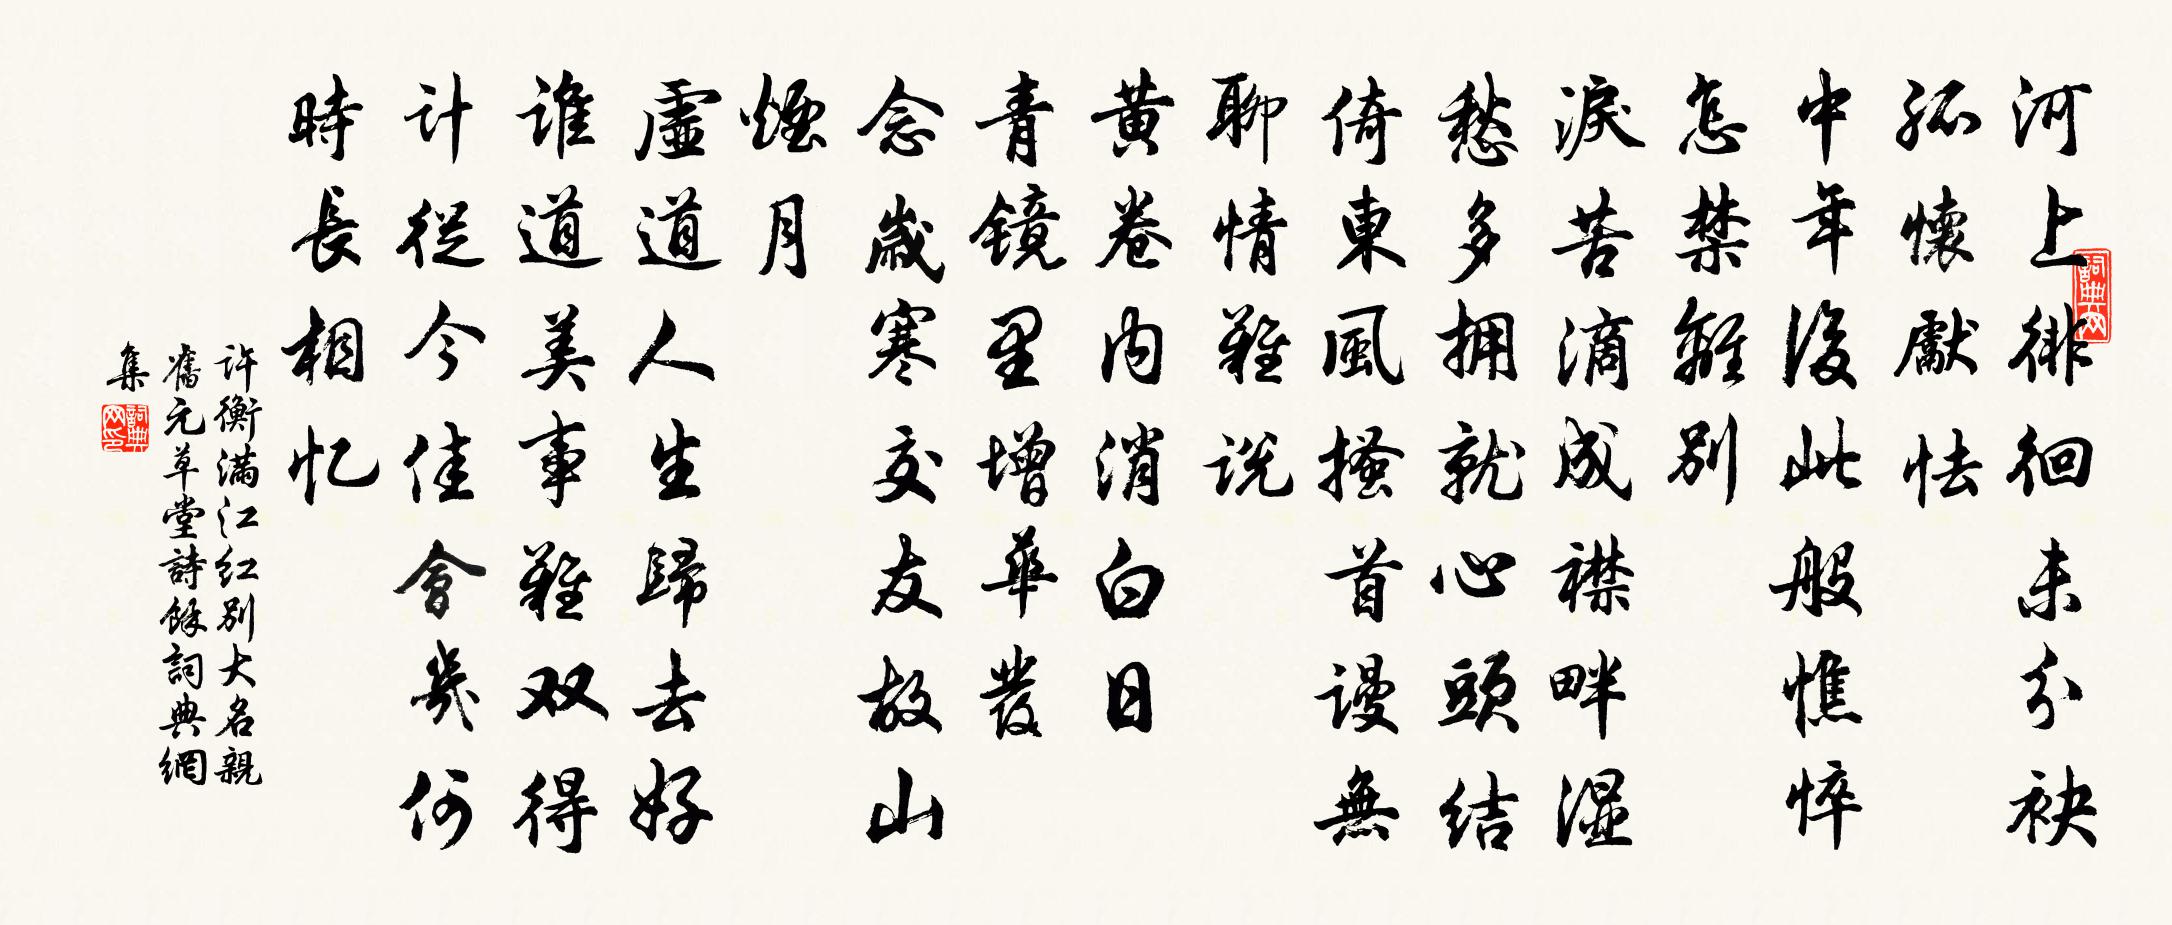 河上徘徊未分袂
孤懷獻怯
中年後此般憔悴
怎禁離別
淚苦滴成襟畔湿
愁多拥就心頭结
倚東風搔首谩無
聊情難说
黄卷内消白日
青镜里增華發
念歲寒交友故山
煙月
虛道人生歸去好
谁道美事難双得
计從今佳會幾何
時長相忆
许衡满江红别大名親
舊元草堂詩餘詞典網
集
詞典网
詞典网印